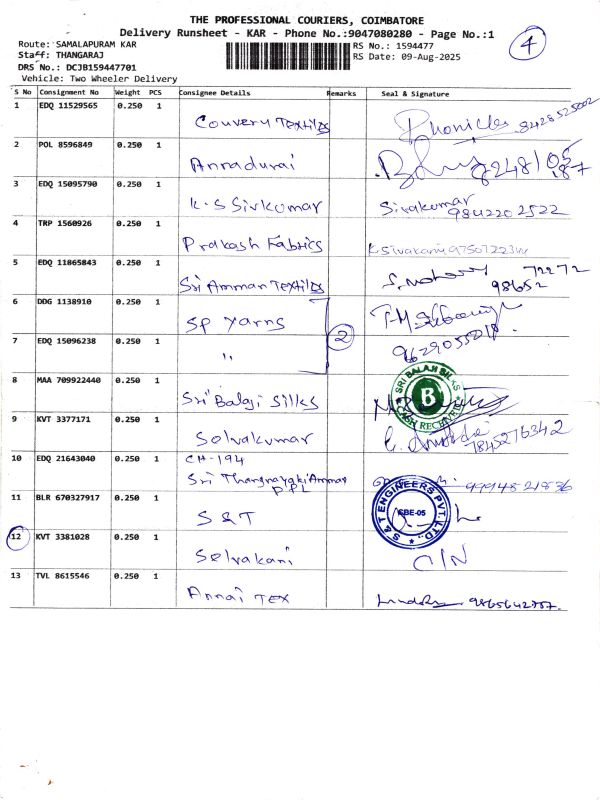 THE PROFESSIONAL COURIERS, COIMBATORE
Delivery Runsheet - KAR - Phone No.:9047080280 - Page No.:1
4
Route: SAMALAPURAM KAR RS No.: 1594477
Staff: THANGARAJ RS Date: 09-Aug-2025
DRS No.: DCJB159447701
Vehicle: Two Wheeler Delivery
S No Consignment No Weight PCS Consignee Details Remarks Seal & Signature
1 EDQ 11529565 0.250 1 Couvery Textiles 8428525002
2 POL 8596849 0.250 1 Annadurai 8248105187
3 EDQ 15095790 0.250 1 K.S Sivkumar Sivakumar 9842202522
4 TRP 1560926 0.250 1 Prakash Fabrics K Sivakani
5 EDQ 11865843 0.250 1 Sri Amman Textiles 72272 98652
6 DDG 1138910 0.250 1 SP Yarns
7 EDQ 15096238 0.250 1 " 2 9629055018
8 MAA 709922440 0.250 1 Sri Balaji Silks SRI BALAJI SILKS B CASH RECEIVED
9 KVT 3377171 0.250 1 Selvakumar 7845276342
10 EDQ 21643040 0.250 1 CH-194
Sri Thangnayaki Amman PPL 9994821836
11 BLR 670327917 0.250 1 S&T S & T ENGINEERS PVT. LTD. SBE-05
12 KVT 3381028 0.250 1 Selvakani C/N
13 TVL 8615546 0.250 1 Annai Tex 9865642757